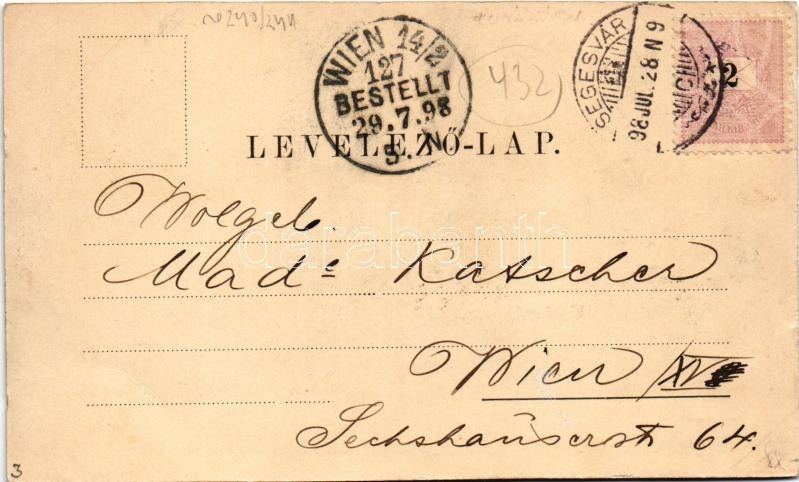 432
WIEN 14/2
127
BESTELLT
29.7.98
5. N
SEGESVÁR
98 JUL 28 N 9
2
LEVELEZŐ-LAP.
darabanth
Wolgeb.
Made Katscher
Wien /XV
Sechshauserstr 64.
3